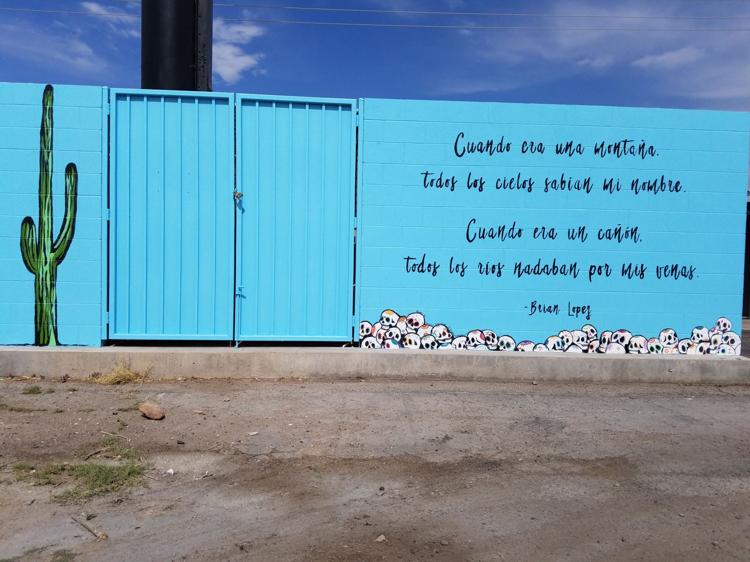 Cuando era una montaña,
todos los cielos sabian mi nombre.
Cuando era un cañón,
todos los ríos nadaban por mis venas.
-Brian Lopez